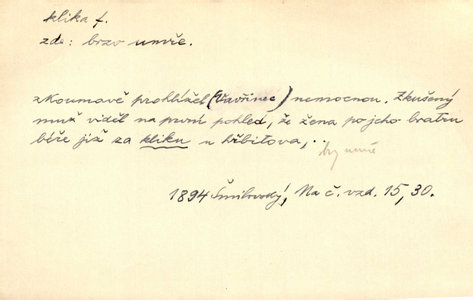 klika f.
zde: brzo umře.
zkoumavě prohlížel (Vavřinec) nemocnou. Zkušený
muž viděl na první pohled, že žena po jeho bratru
béře již za kliku u hřbitova,..
brzy umře
1894 Šmilovský, Na č. vzd. 15, 30.